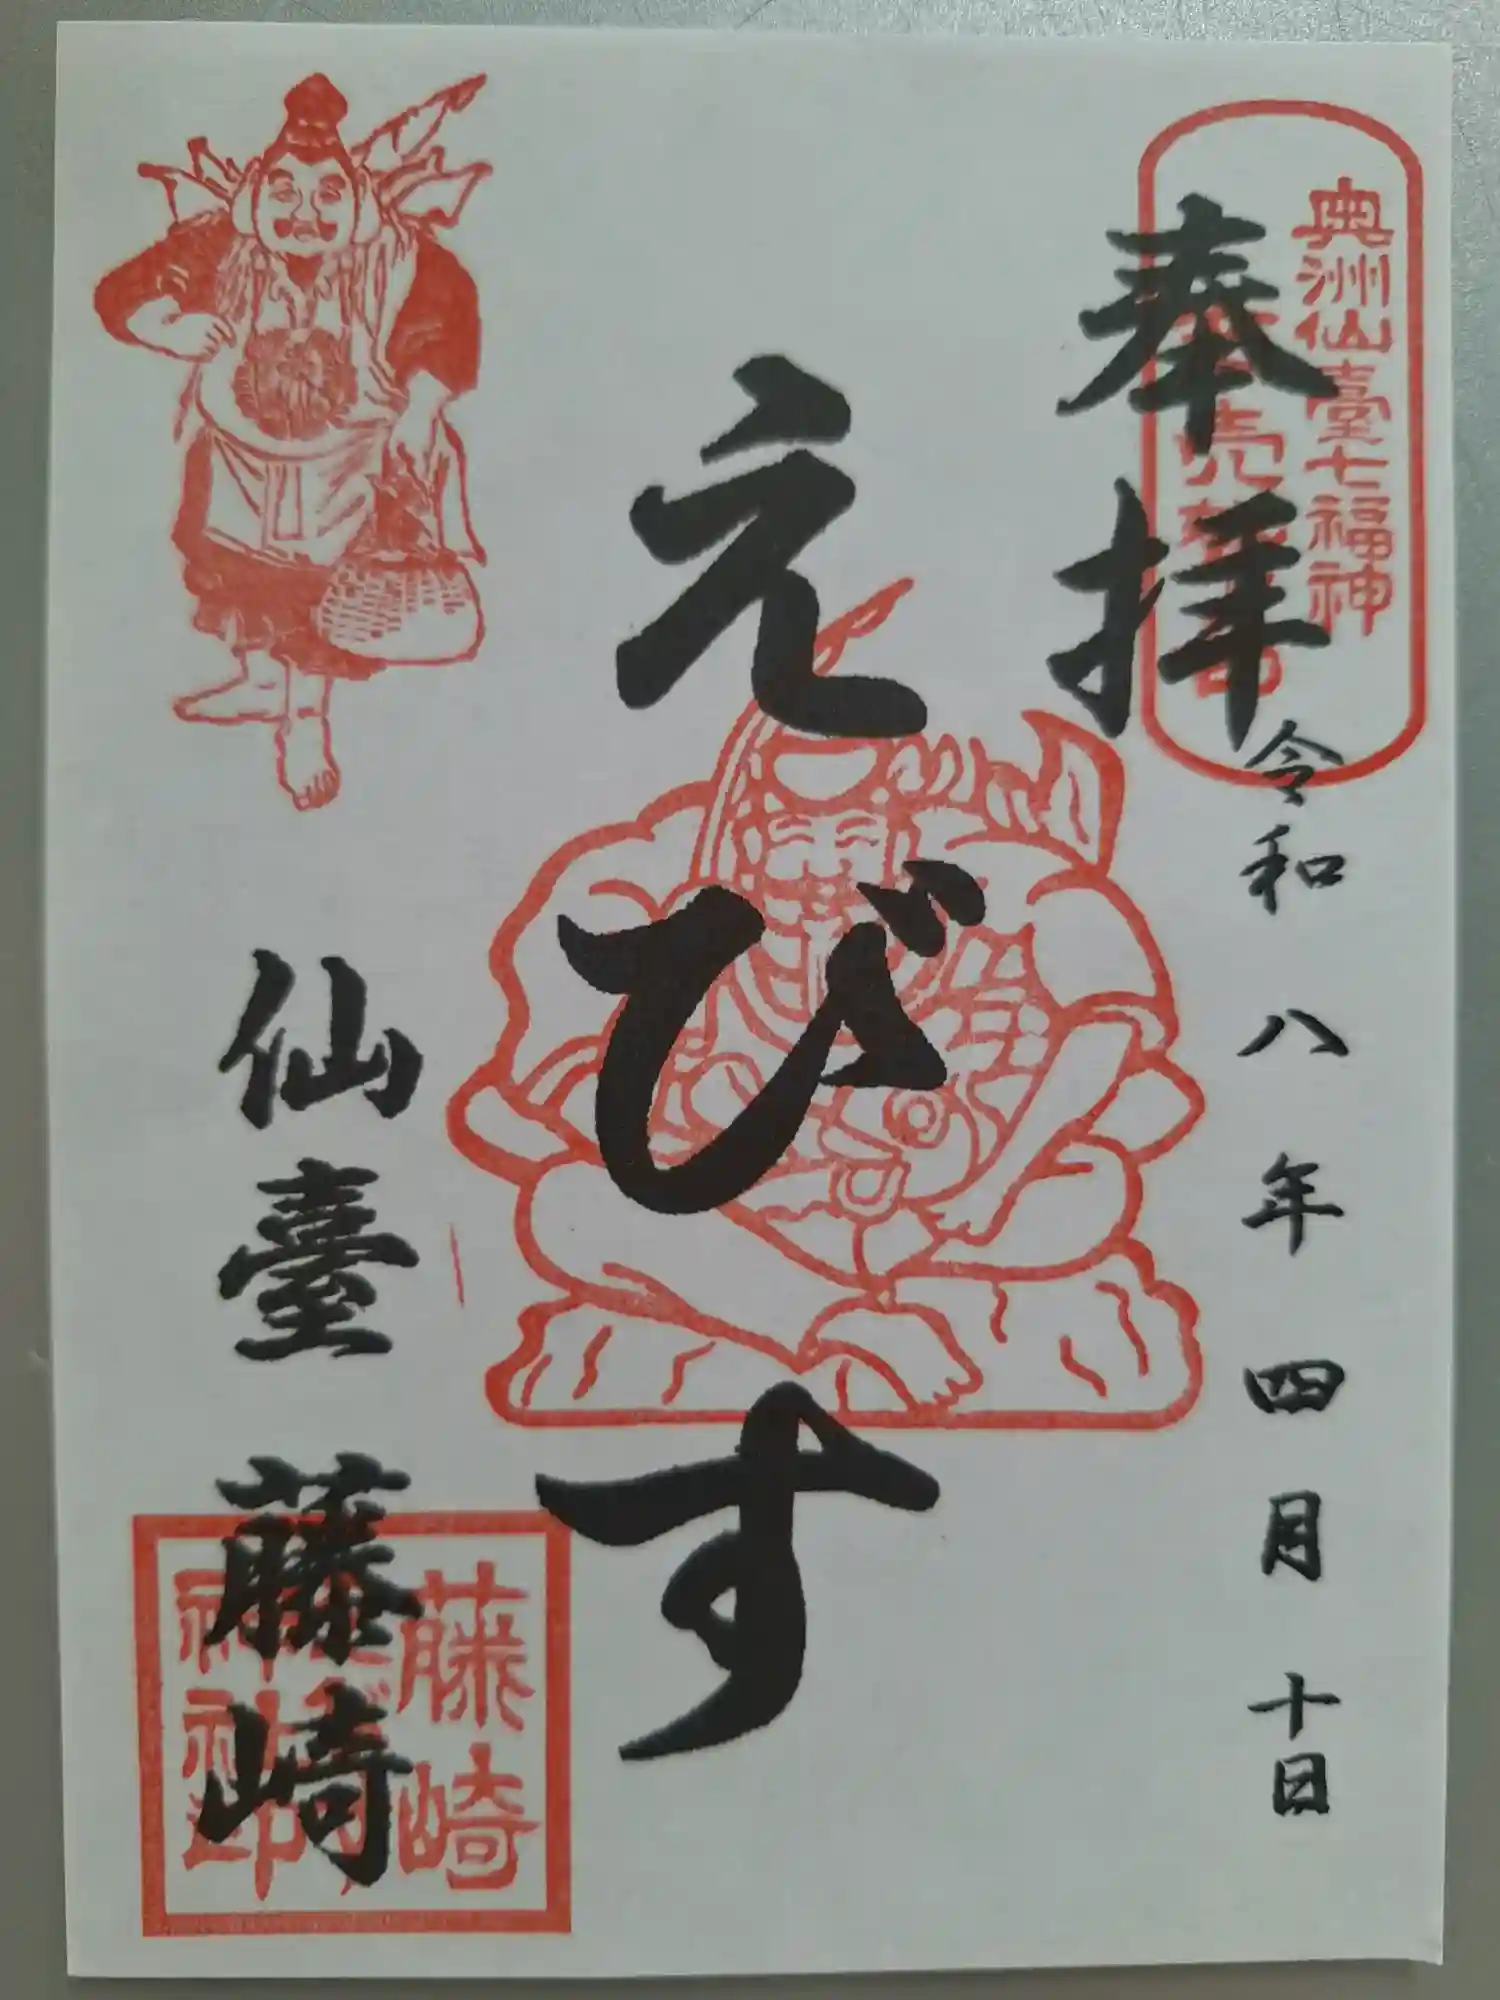 奥洲仙臺七福神
奉拝
令和八年四月十日
えびす
仙臺藤崎
藤崎